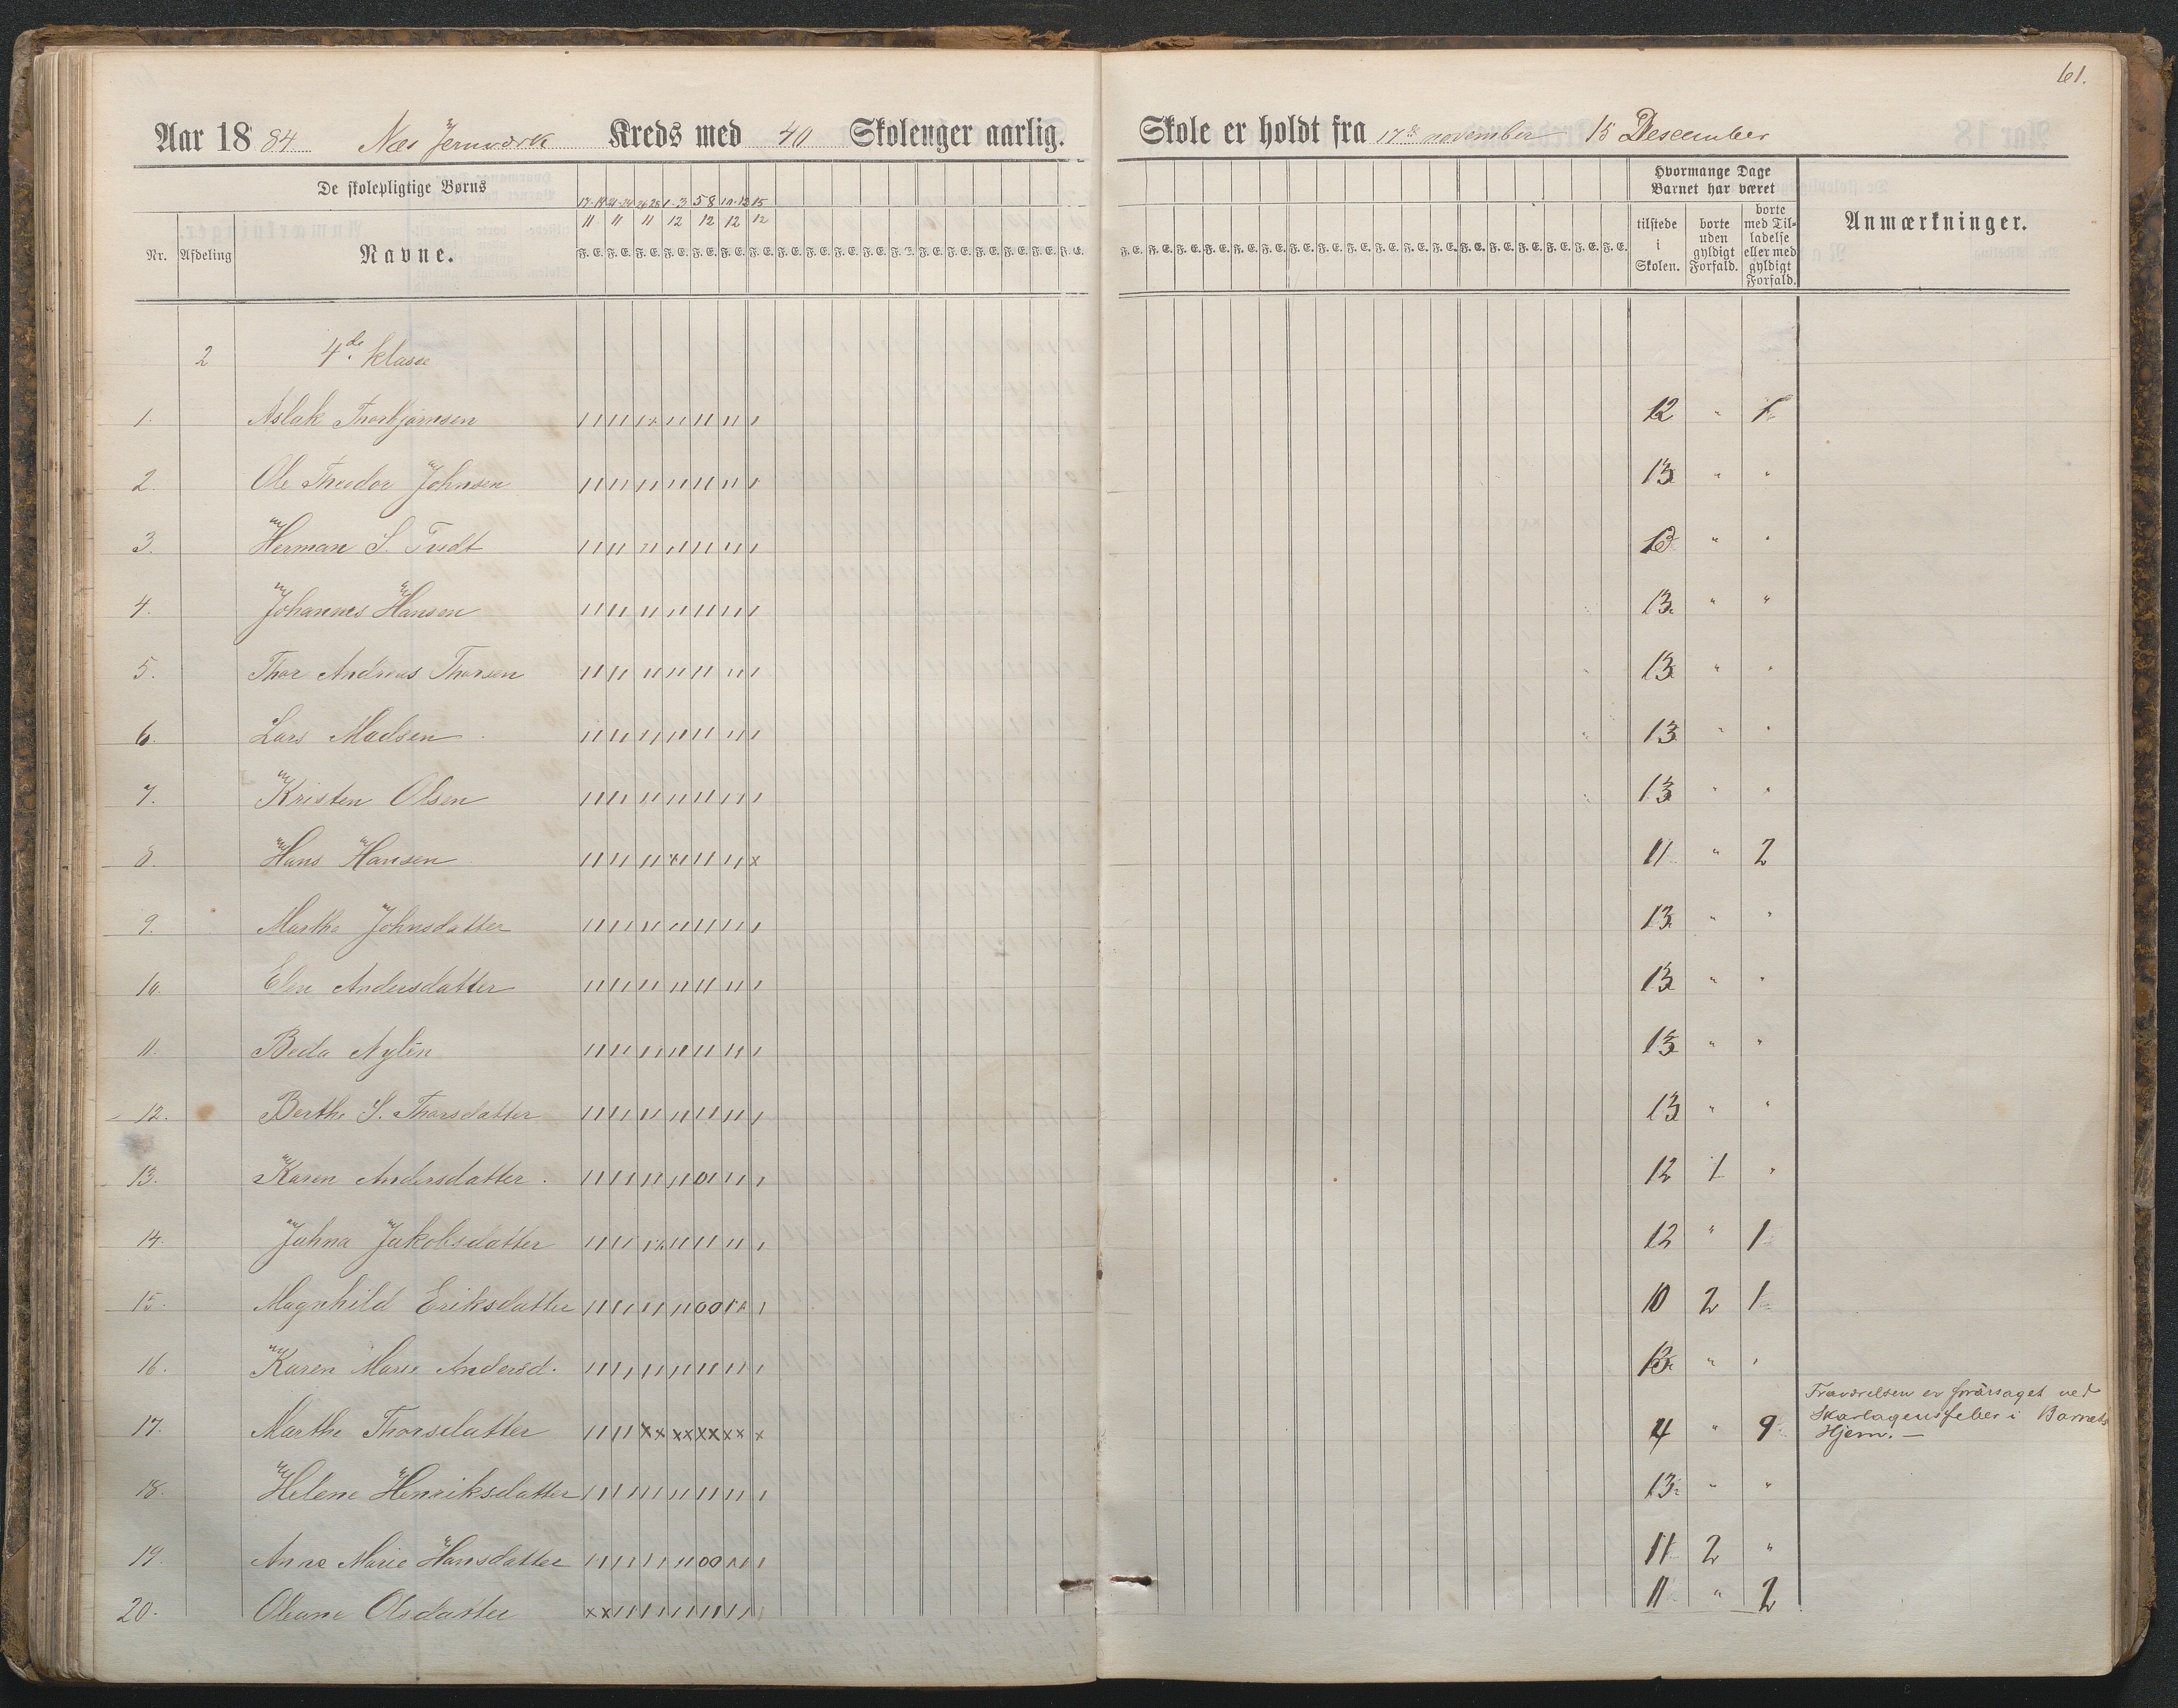 61.
Aar 1884 Næs Jernværk Kreds med 40 Skolenger aarlig. Skole er holdt fra 17de november 15 Descember
De skolepligtige Børns
Hvormange Dage Barnet har været
17 19 21 24 26 28 1 3 5 8 10 12 15
11 11 11 12 12 12 12
Nr. Afdeling Navne. F. E. F. E. F. E. F. E. F. E. F. E. F. E. F. E. F. E. F. E. F. E. F. E. F. E. F. E. F. E. F. E. F. E. F. E. tilstede i Skolen. borte uden gyldigt Forfald. borte med Tilladelse eller med gyldigt Forfald. Anmærkninger.
2 4de klasse
1. Aslak Thorbjørnsen 12 " 1
2. Ole Theodor Johnsen 13 " "
3. Herman S. Tvedt 13 " "
4. Johannes Hansen 13 " "
5. Thor Andreas Thorsen 13 " "
6. Lars Madsen 13 " "
7. Kristen Olsen 13 " "
8. Hans Hansen 11 " 2
9. Marthe Johnsdatter 13 " "
10. Elen Andersdatter 13 " "
11. Beda Nylén 13 " "
12. Berthe S. Thorsdatter 13 " "
13. Karen Andersdatter 12 1 "
14. Johna Jakobsdatter 12 " 1
15. Magnhild Eriksdatter 10 2 1
16. Karen Marie Andersd. 13 " "
17. Marthe Thorsdatter 4 " 9 Fraværelsen er forårsaget ved
Skarlagensfeber i Barnets
Hjem. —
18. Helene Henriksdatter 13 " "
19. Anne Marie Hansdatter 11 2 "
20. Oleane Olsdatter 11 " 2